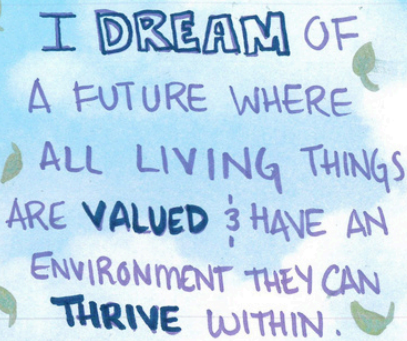 I DREAM OF
A FUTURE WHERE
ALL LIVING THINGS
ARE VALUED & HAVE AN
ENVIRONMENT THEY CAN
THRIVE WITHIN.